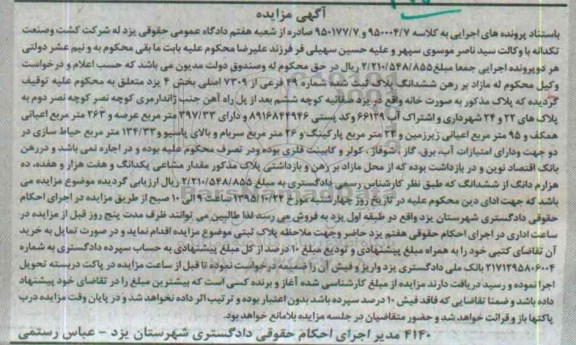 آگهی مزایده
باستناد پرونده های اجرایی به کلاسه ۹۵۰۰۰۴/۷ و ۹۵۰۱۷۷/۷ صادره از شعبه هفتم دادگاه عمومی حقوقی یزد له شرکت کشت وصنعت
تکدانه با وکالت سید ناصر موسوی سپهر و علیه حسین سهیلی فر فرزند علیرضا محکوم علیه بابت ما بقی محکوم به و نیم عشر دولتی
هر دوپرونده اجرایی جمعا مبلغ ۲/۲۱۰/۵۴۸/۸۵۵ ریال در حق محکوم له وصندوق دولت مدیون می باشد که حسب اعلام و درخواست
وکیل محکوم له مازاد بر رهن ششدانگ پلاک ثبت شده شماره ۴۹ فرعی از ۷۳۰۹ اصلی بخش ۴ یزد متعلق به محکوم علیه توقیف
گردیده که پلاک مذکور به صورت خانه واقع در یزد صفائیه کوچه ششم بعد از پل راه آهن جنب ژاندارمری کوچه نصر کوچه نصر دوم به
پلاک های ۲۲ و ۲۴ شهرداری و اشتراک آب ۶۶۱۲۹ وکد پستی ۸۹۱۶۸۴۴۹۴۶ و دارای ۳۹۷/۳۳ متر مربع عرصه و ۲۶۳ متر مربع اعیانی
همکف و ۹۵ متر مربع اعیانی زیرزمین و ۲۴ متر مربع پارکینگ و ۲۶ متر مربع سربام و بالای پاسیو و ۱۳۴/۳۳ متر مربع حیاط سازی در
دو جهت ودارای امتیازات آب، برق، گاز ، شوفاژ، کولر و کابینت فلزی بوده ودر تصرف محکوم علیه بوده و در اجاره نمی باشد و دررهن
بانک اقتصاد نوین و در بازداشت بوده که از محل مازاد بر رهن و بازداشتی پلاک مذکور مقدار مشاعی یکدانگ و هفت هزار و هفده، ده
هزارم دانگ از ششدانگ که طبق نظر کارشناس رسمی دادگستری به مبلغ ۲/۲۱۰/۵۴۸/۸۵۵ ریال ارزیابی گردیده موضوع مزایده می
باشد که جهت ادای دین محکوم علیه در تاریخ روز چهارشنبه مورخ ۱۳۹۵/۱۰/۲۲ ساعت ۹ الی ۱۰ صبح از طریق مزایده در اجرای احکام
حقوقی دادگستری شهرستان یزد واقع در طبقه اول یزد به فروش می رسد لذا طالبین می توانند ظرف مدت پنج روز قبل از مزایده در
ساعت اداری در اجرای احکام حقوقی هفتم یزد حاضر وجهت ملاحظه پلاک ثبتی موضوع مزایده اقدام نماید و در صورت تمایل به خرید
آن تقاضای کتبی خود را به همراه مبلغ پیشنهادی و تودیع مبلغ ۱۰ درصد از کل مبلغ پیشنهادی به حساب سپرده دادگستری به شماره
۲۱۷۱۲۹۵۸۰۶۰۰۴ بانک ملی دادگستری یزد واریز و فیش آن را ضمیمه درخواست نموده تا قبل از ساعت مزایده در پاکت دربسته تحویل
اجرا نموده و رسید دریافت دارند مزایده از مبلغ کارشناسی شده آغاز و برنده کسی است که بیشترین مبلغ را در تقاضای خود پیشنهاد
داده باشد و ضمنا تقاضایی که فاقد فیش ۱۰ درصد سپرده باشد بدون اعتبار بوده و ترتیب اثر داده نخواهد شد و در پایان وقت مزایده درب
پاکتها باز و قرائت خواهد شد و حضور متقاضیان در جلسه مزایده بلامانع خواهد بود.
۴۱۴۰ مدیر اجرای احکام حقوقی دادگستری شهرستان یزد - عباس رستمی